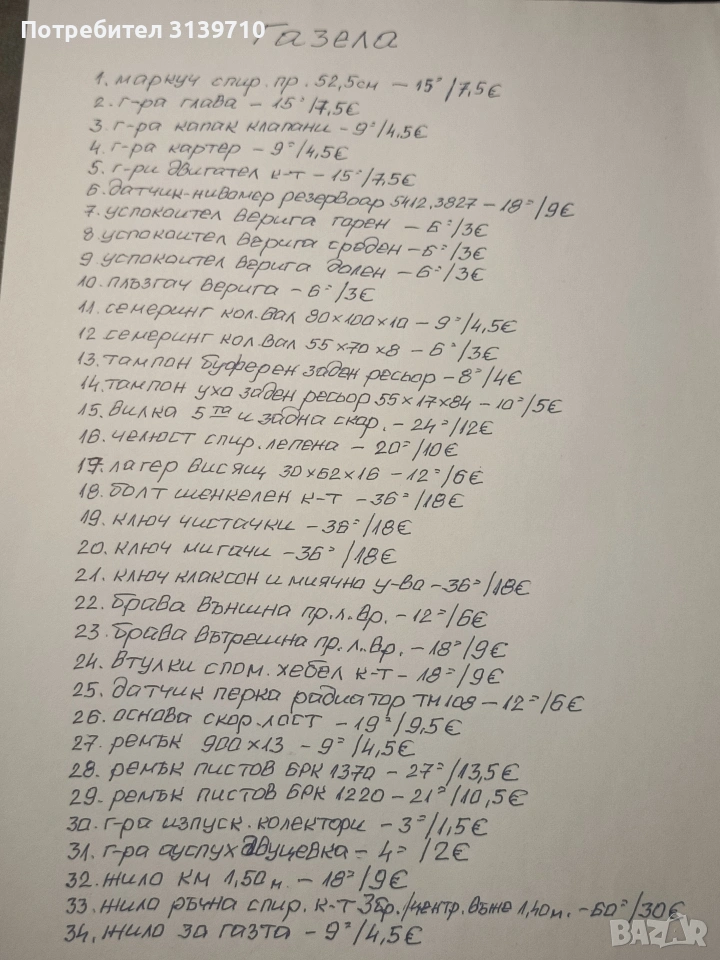 Потребител 3139710
Газела
1. маркуч спир. пр. 52,5см - 15=/7,5€
2. г-ра глава - 15=/7,5€
3. г-ра капак клапани - 9=/4,5€
4. г-ра картер - 9=/4,5€
5. г-ри двигател к-т - 15=/7,5€
6. датчик-нивомер резервоар 5412.3827 - 18=/9€
7. успокоител верига горен - 6=/3€
8. успокоител верига среден - 6=/3€
9. успокоител верига долен - 6=/3€
10. плъзгач верига - 6=/3€
11. семеринг кол.вал 80x100x10 - 9=/4,5€
12. семеринг кол.вал 55x70x8 - 6=/3€
13. тампон буферен заден ресьор - 8=/4€
14. тампон ухо заден ресьор 55x17x84 - 10=/5€
15. вилка 5та и задна скор. - 24=/12€
16. челюст спир. лепена - 20=/10€
17. лагер висящ 30x62x16 - 12=/6€
18. болт шенкелен к-т - 36=/18€
19. ключ чистачки - 36=/18€
20. ключ мигачи - 36=/18€
21. ключ клаксон и миячно у-во - 36=/18€
22. брава външна пр.л.вр. - 12=/6€
23. брава вътрешна пр.л.вр. - 18=/9€
24. втулки спом. хебел к-т - 18=/9€
25. датчик перка радиатор ТМ108 - 12=/6€
26. основа скор.лост - 19=/9,5€
27. ремък 900x13 - 9=/4,5€
28. ремък пистов БРК 1370 - 27=/13,5€
29. ремък пистов БРК 1220 - 21=/10,5€
30. г-ра изпуск. колектори - 3=/1,5€
31. г-ра ауспух двуцевка - 4=/2€
32. жило км 1,50м. - 18=/9€
33. жило ръчна спир. к-т 3бр./центр.въже 1,40м. - 60=/30€
34. жило за газта - 9=/4,5€
BAZAR